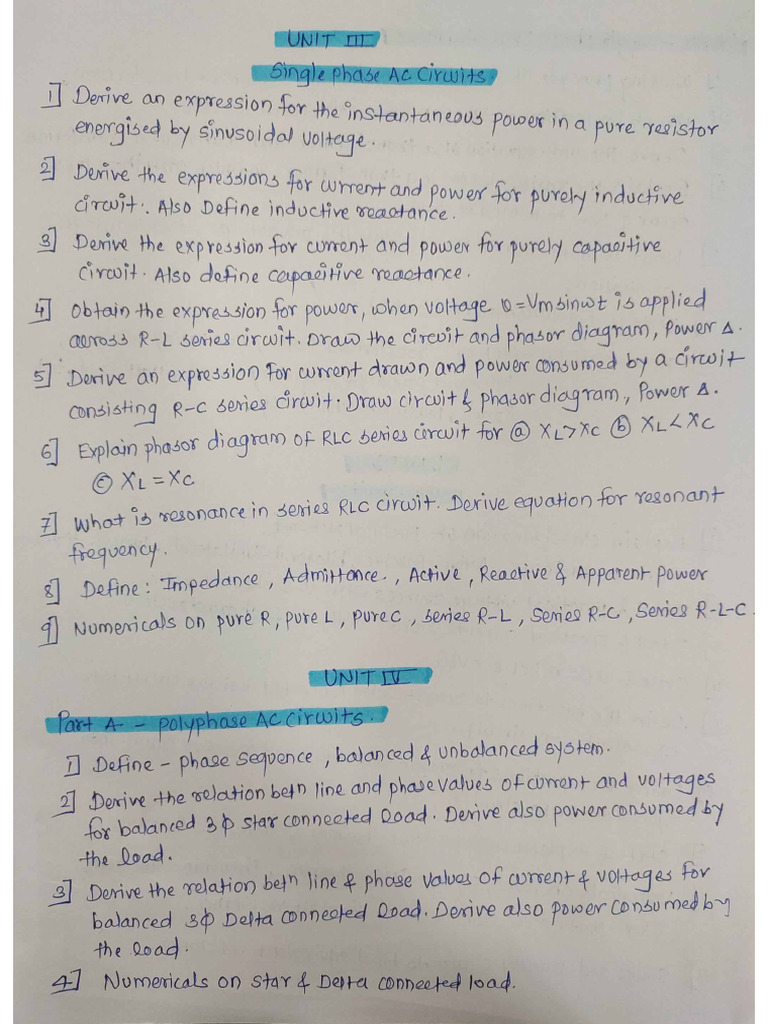 UNIT III
Single phase AC Circuits.
1] Derive an expression for the instantaneous power in a pure resistor
energised by sinusoidal voltage.
2] Derive the expressions for current and power for purely inductive
circuit. Also Define inductive reactance.
3] Derive the expression for current and power for purely capacitive
circuit. Also define capacitive reactance.
4] Obtain the expression for power, when voltage v=Vmsinwt is applied
across R-L series circuit. Draw the circuit and phasor diagram, Power Δ.
5] Derive an expression for current drawn and power consumed by a circuit
consisting R-C series circuit. Draw circuit & phasor diagram, Power Δ.
6] Explain phasor diagram of RLC series circuit for ⓐ XL>XC ⓑ XL<XC
ⓒ XL=XC
7] What is resonance in series RLC circuit. Derive equation for resonant
frequency.
8] Define: Impedance, Admittance, Active, Reactive & Apparent power
9] Numericals on pure R, pure L, pure C, series R-L, Series R-C, Series R-L-C.
UNIT IV
Part A - Polyphase AC Circuits.
1] Define - phase sequence, balanced & unbalanced system.
2] Derive the relation betn line and phase values of current and voltages
for balanced 3φ star connected load. Derive also power consumed by
the load.
3] Derive the relation betn line & phase values of current & voltages for
balanced 3φ Delta connected load. Derive also power consumed by
the load.
4] Numericals on star & Delta connected load.